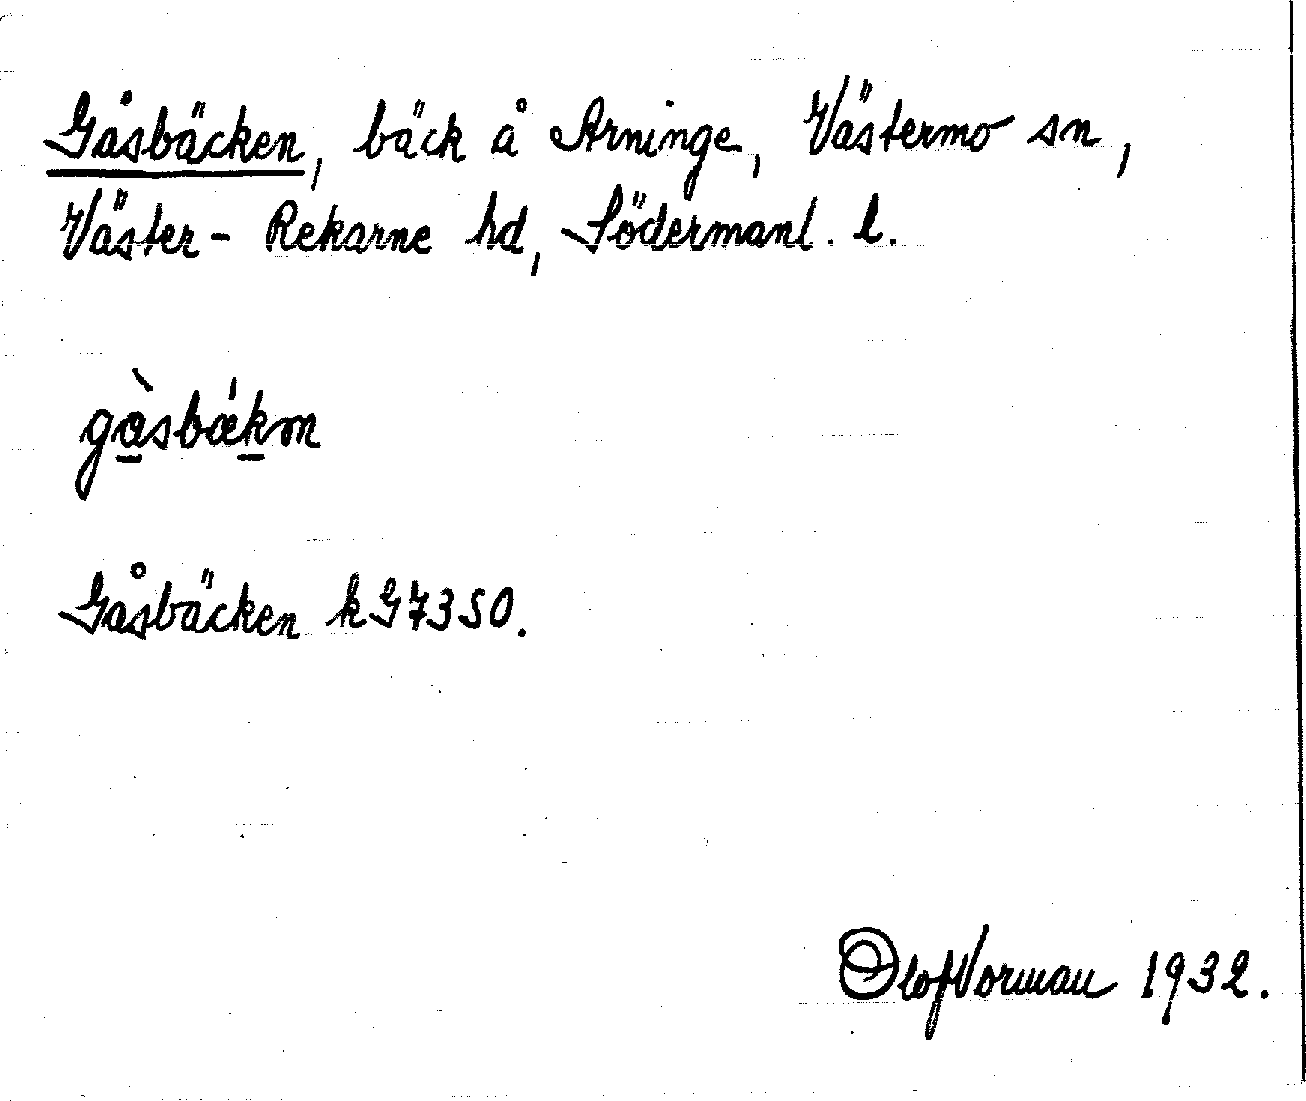 Gåsbäcken, bäck å Arninge, Västermo sn,
Väster-Rekarne hd, Södermanl. l.
gàsbækm
Gåsbäcken kG7350.
Olof Vorman 1932.